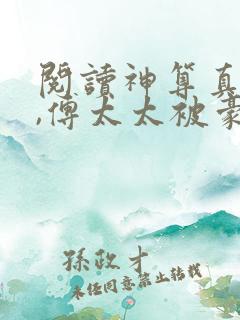 閱讀神算真
,傅太太被豪
孫政才
未經同意禁止轉載